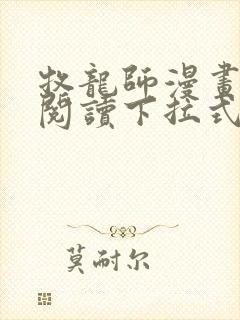 牧龍師漫畫
閱讀下拉式
莫耐尔